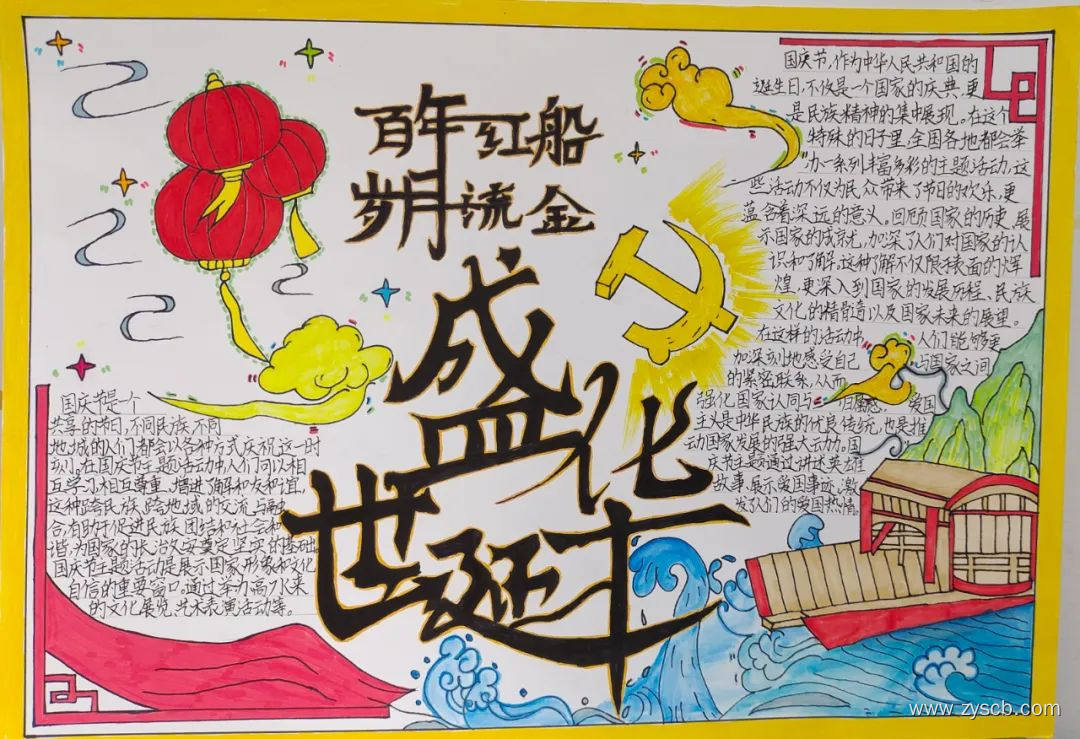 百年红船
岁月流金
盛世华诞
国庆节是一个
共享的节日,不同民族不同
地域的人们都会以各种方式庆祝这一时
刻,在国庆节主题活动中人们可以相
互学习相互尊重,增进了解和友和谊,
这种跨民族、跨地域的交流与融
合,有助于促进民族团结和社会和
谐,为国家的长治久安奠定坚实的基础。
国庆节主题活动是展示国家形象和文化
自信的重要窗口。通过举办高水来
的文化展览,艺术表演活动等。
国庆节,作为中华人民共和国的
诞生日,不仅是一个国家的庆典,更
是民族精神的集中展现。在这个
特殊的日子里,全国各地都会举
办一系列丰富多彩的主题活动,这
些活动不仅为民众带来了节日的欢乐,更
蕴含着深远的意义。回顾国家的历史,展
示国家的成就,加深了人们对国家的认
识和了解,这种了解不仅限于表面的辉
煌,更深入到国家的发展历程、民族
文化的精髓以及国家未来的展望。
在这样的活动中,人们能够更
加深刻地感受自己与国家之间
的紧密联系,从而
强化国家认同与归属感,爱国
主义是中华民族的优良传统,也是推
动国家发展的强大动力。国
庆节主题通过讲述英雄
故事,展示爱国事迹,激
发了人们的爱国热情。
www.zyscb.com